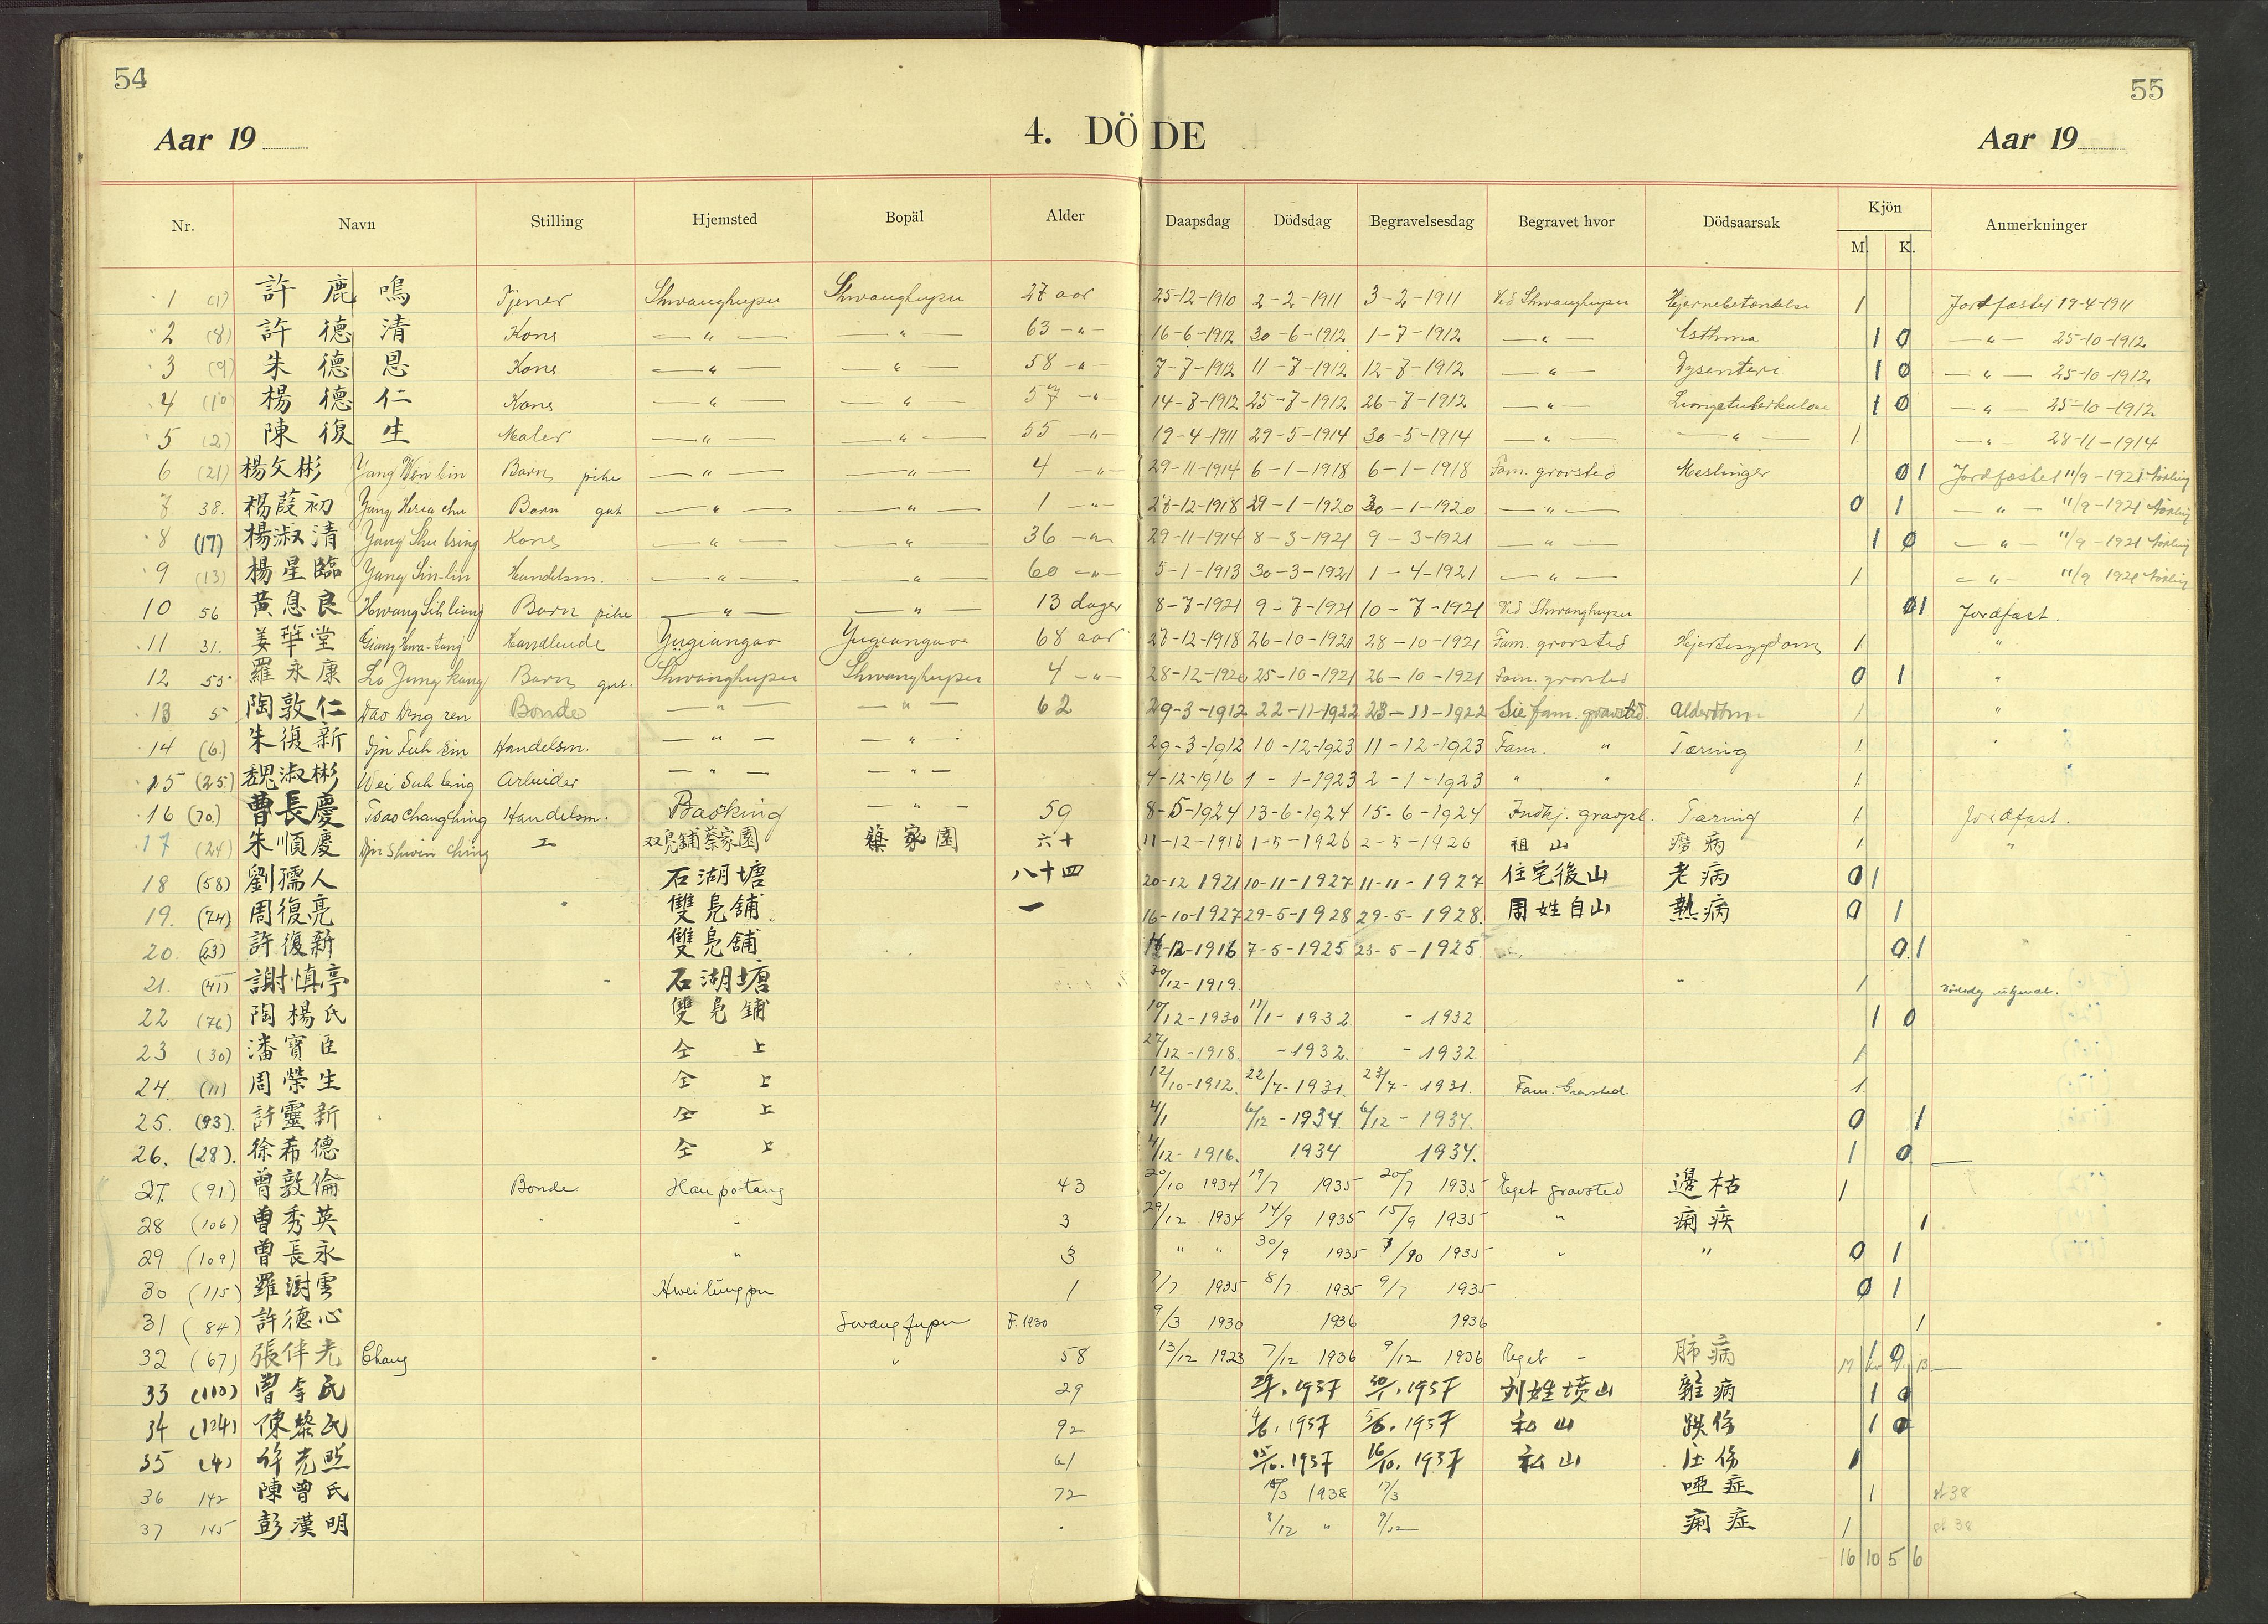 54
55
Aar 19
4. DÖDE
Aar 19
Nr. Navn Stilling Hjemsted Bopäl Alder Daapsdag Dödsdag Begravelsesdag Begravet hvor Dödsaarsak Kjön M. K. Anmerkninger
1 (1) 許鹿鳴 Tjener Shwanghupu Shwanghupu 27 aar 25-12-1910 2-2-1911 3-2-1911 Ved Shwanghupu Hjernebetændelse 1 Jordfæstet 19-4-1911
2 (8) 許德清 Kone —„— —„— 63 —„— 16-6-1912 30-6-1912 1-7-1912 —„— Asthma 1 0 —„— 25-10-1912
3 (9) 朱德恩 Kone —„— —„— 58 —„— 7-7-1912 11-7-1912 12-7-1912 —„— Dysenteri 1 0 —„— 25-10-1912
4 (10) 楊德仁 Kone —„— —„— 57 —„— 14-7-1912 25-7-1912 26-7-1912 —„— Lungetuberkulose 1 0 —„— 25-10-1912
5 (2) 陳復生 Maler —„— —„— 55 —„— 19-4-1911 29-5-1914 30-5-1914 —„— —„— 1 —„— 28-11-1914
6 (21) 楊文彬 Yang Wen bin Barn pike —„— —„— 4 —„— 29-11-1914 6-1-1918 6-1-1918 Fam. gravsted Meslinger 0 1 Jordfæstet 11/9-1921
7 38. 楊葭初 Yang Hsia chu Barn gut —„— —„— 1 —„— 27-12-1918 29-1-1920 30-1-1920 —„— 0 1 —„— 11/9-1921
8 (17) 楊淑清 Yang Shu tsing Kone —„— —„— 36 —„— 29-11-1914 8-3-1921 9-3-1921 —„— 1 0 —„— 11/9-1921
9 (13) 楊星臨 Yang Sin-lin Handelsm. —„— —„— 60 —„— 5-1-1913 30-3-1921 1-4-1921 —„— 1 —„— 11/9 1921
10 56 黃息良 Hwang Sih liang Barn pike —„— —„— 13 dager 8-7-1921 9-7-1921 10-7-1921 Ved Shwanghupu 0 1 Jordfæst.
11 31. 姜華堂 Giang Hwa-tang Handlende Yugiangao Yugiangao 68 aar 27-12-1918 26-10-1921 28-10-1921 Fam. gravsted Hjertesygdom 1 „
12 55 羅永康 Lo Jung kang Barn gut. Shwanghupu Shwanghupu 4 —„— 28-12-1920 25-10-1921 26-10-1921 Fam. gravsted 0 1 „
13 5 陶敦仁 Dao Deng ren Bonde —„— —„— 62 29-3-1912 22-11-1922 23-11-1922 Sie fam. gravsted. Alderdom 1 „
14 (6.) 朱復新 Djn Fuh Sin Handelsm. —„— —„— 29-3-1912 10-12-1923 11-12-1923 Fam. „ Tæring 1 „
15 (25.) 魏淑彬 Wei Suh bing Arbeider —„— —„— 4-12-1916 1-1-1923 2-1-1923 „ „ 1
16 (70.) 曹長慶 Tsao Chang Ching Handelsm. Baoking —„— 59 8-5-1924 13-6-1924 15-6-1924 Indkj. gravpl. Tæring 1 Jordfæst.
17 (24) 朱順慶 Djn Shwin Ching 工 双凫鋪蔡家園 蔡家園 六十 11-12-1916 1-5-1926 2-5-1926 祖山 癆病 1 „
18 (58) 劉孺人 石湖塘 八十四 20-12 1921 10-11-1927 11-11-1927 住宅後山 老病 0 1
19. (74) 周復亮 雙凫舖 一 16-10-1927 29-5-1928 29-5-1928. 周姓自山 熱病 0 1
20. (23) 許復新 雙凫舖 12-1916 7-5-1925 23-5-1925 0 1
21. (41) 謝慎亭 石湖塘 30/12-1919. 1 Dödsdag ukjendt.
22 (76) 陶楊氏 雙凫鋪 10/12-1930 11/1-1932. -1932 1 0
23 (30) 潘寳臣 仝上 27/12-1918. -1932. -1932. 1
24. (11) 周榮生 仝上 12/10-1912. 22/7-1931. 23/7-1931. Fam. Gravsted. 1
25. (93). 許靈新 仝上 4/1 6/12-1934. 6/12-1934. 0 1
26. (28). 徐希德 仝上 4/12-1916. 1934 1934. 1 0
27. (91.) 曾敦倫 Bonde Hanpotang 43 20/10 1934 19/7 1935 20/7 1935 Eget gravsted 邊枯 1
28 (106) 曾秀英 „ 3 29/12 1934 14/9 1935 15/9 1935 „ 痢疾 1
29 (109) 曾長永 „ 3 „ „ 30/9 1935 1/10 1935 „ „ 0 1
30 (115) 羅澍雲 Hweilungpu 1 7/7 1935 8/7 1935 9/7 1935 0 1
31 (84) 許德心 Swangfupu F. 1930 9/3 1930 1936 1936 1
32 (67) 張伴光 Chang „ 58 13/12 1923 7/12 1936 9/12 1936 Eget - 肺病 1 0
33 (110) 曾李氏 29 29/1.1937 30/1.1937 刘姓坟山 雜病 1 0
34 (124) 陳黎氏 92 4/6.1937 5/6.1937 私山 跌伤 1 0
35 (4) 許光照 61 15/10.1937 16/10.1937 私山 压伤 1
36 142 陳曾氏 72 1938 17/3 啞症 1 38
37 145 彭漢明 8/12 „ 9/12 痢症 1 38
16 10 5 6